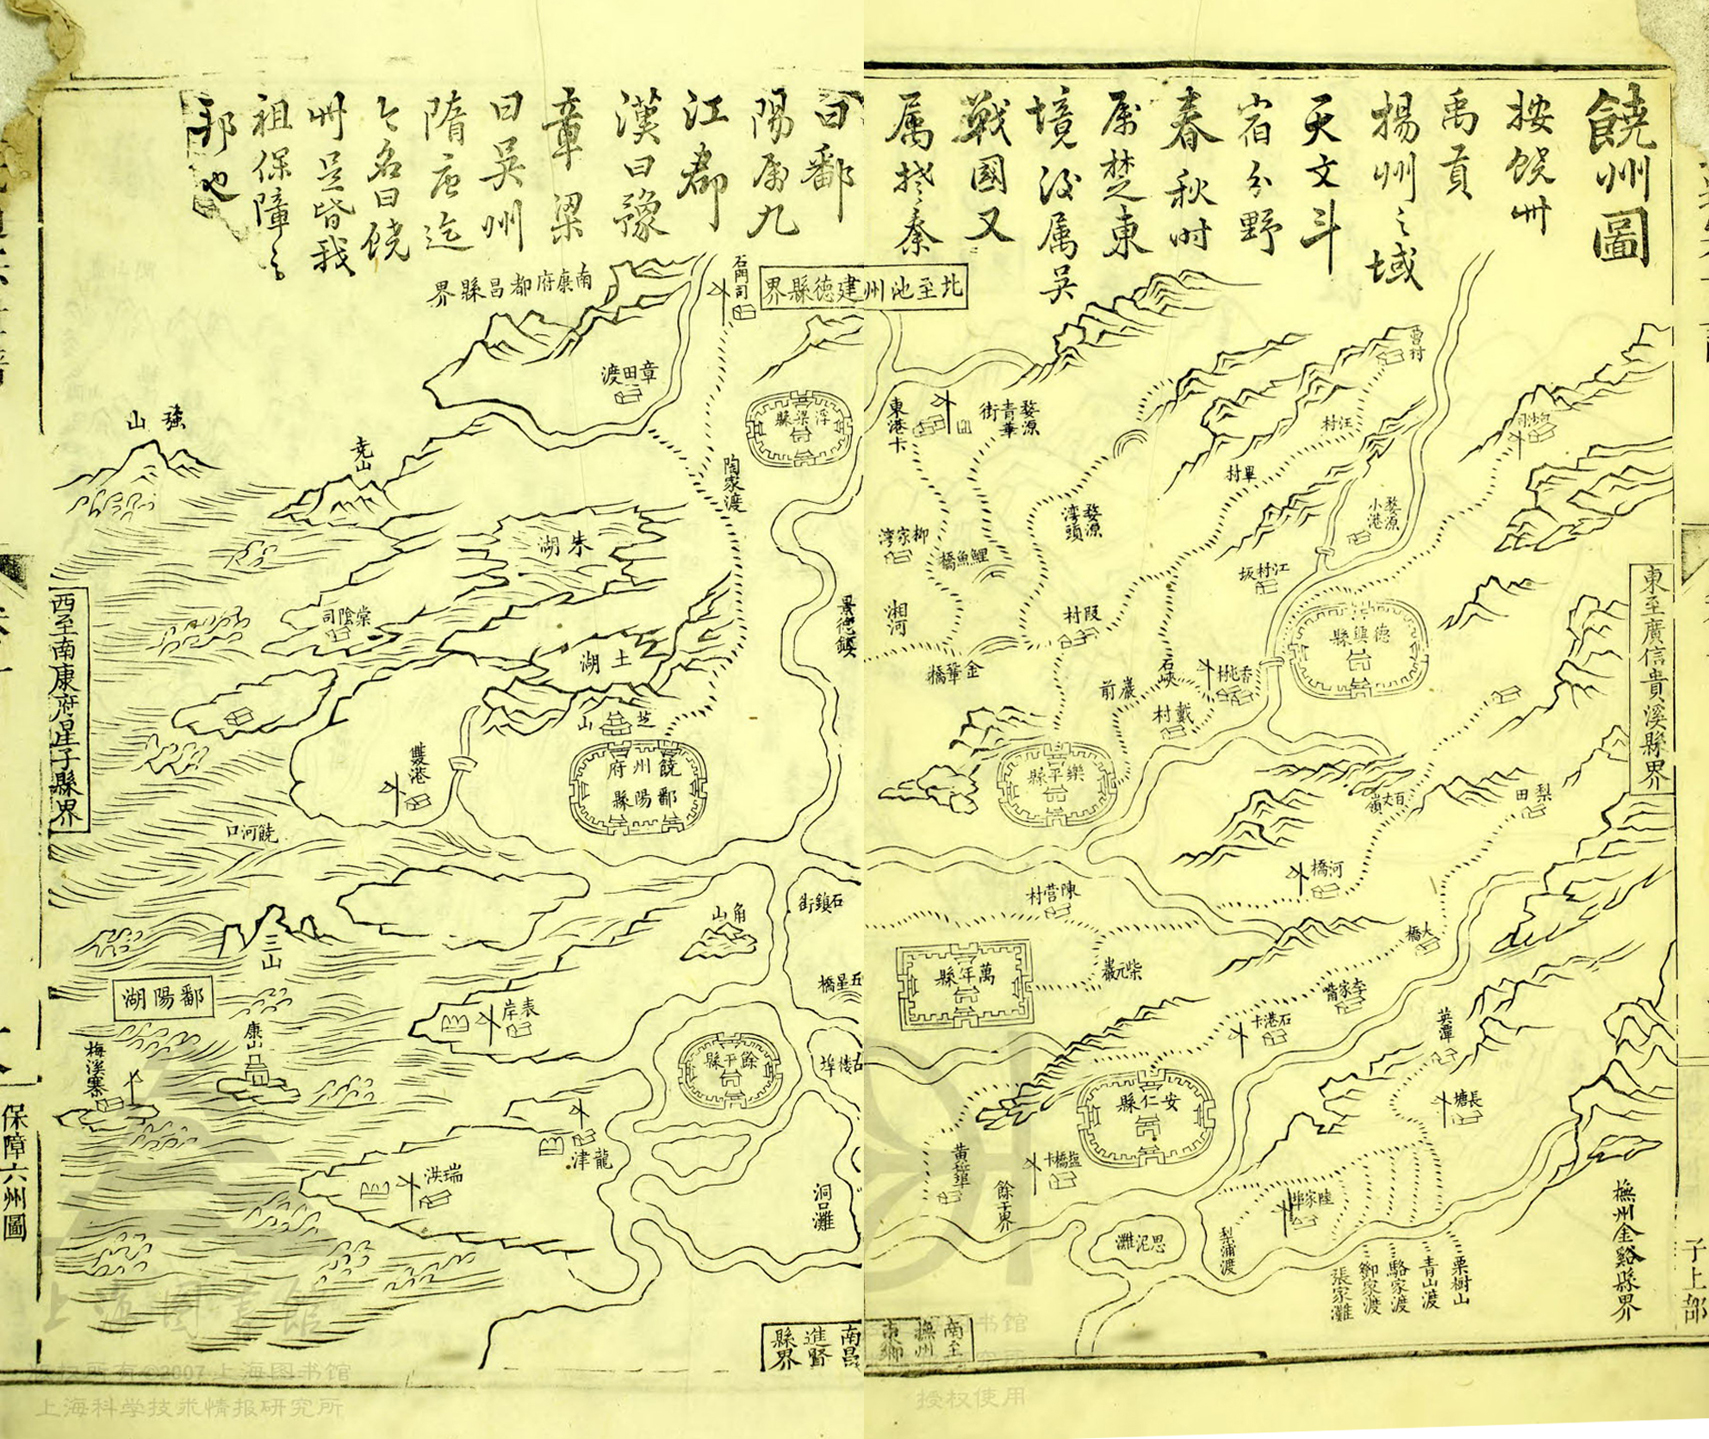 饒州圖
按饒州
禹貢
揚州之域
天文斗
宿分野
春秋时
属楚東
境後属吴
戰國又
属楚秦
曰鄱
陽属九
江郡
漢曰豫
章梁
曰吴州
隋唐迄
今名曰饒
州是皆我
祖保障之
邦也
北至池州建德縣界
東至廣信貴溪縣界
撫州金谿縣界
南至撫州東鄉
南昌進賢縣界
西至南康府星子縣界
南康府都昌縣界
石門司
章田渡
浮梁縣
陶家渡
強山
尭山
朱湖
棠陰司
土湖
芝山
饒州府
鄱陽縣
雙港
饒河口
景德鎮
三山
鄱陽湖
康山
梅溪寨
角山
石鎮街
五星橋
表岸
餘干縣
龍津
瑞洪
洞口灘
東港卡
婺源青華街
柳家湾
鯉魚橋
湘河
金華橋
婺源湾頭
段村
石峽
巖前
戴村
香屯村
樂平縣
汪村
畢村
婺源小港
江村坂
德興縣
百丈嶺
梨田
河橋
陳營村
萬年縣
柴元巖
大橋
李家嘴
石港卡
英潭
安仁縣
長塘
黄岳埠
餘干界
塩橋卡
思泥灘
梨浦渡
陸家埠
張家灘
鄒家渡
駱家渡
青山渡
栗樹山
保障六州圖
子上部
上海图书馆
©2007 上海图书馆
上海科学技术情报研究所
授权使用